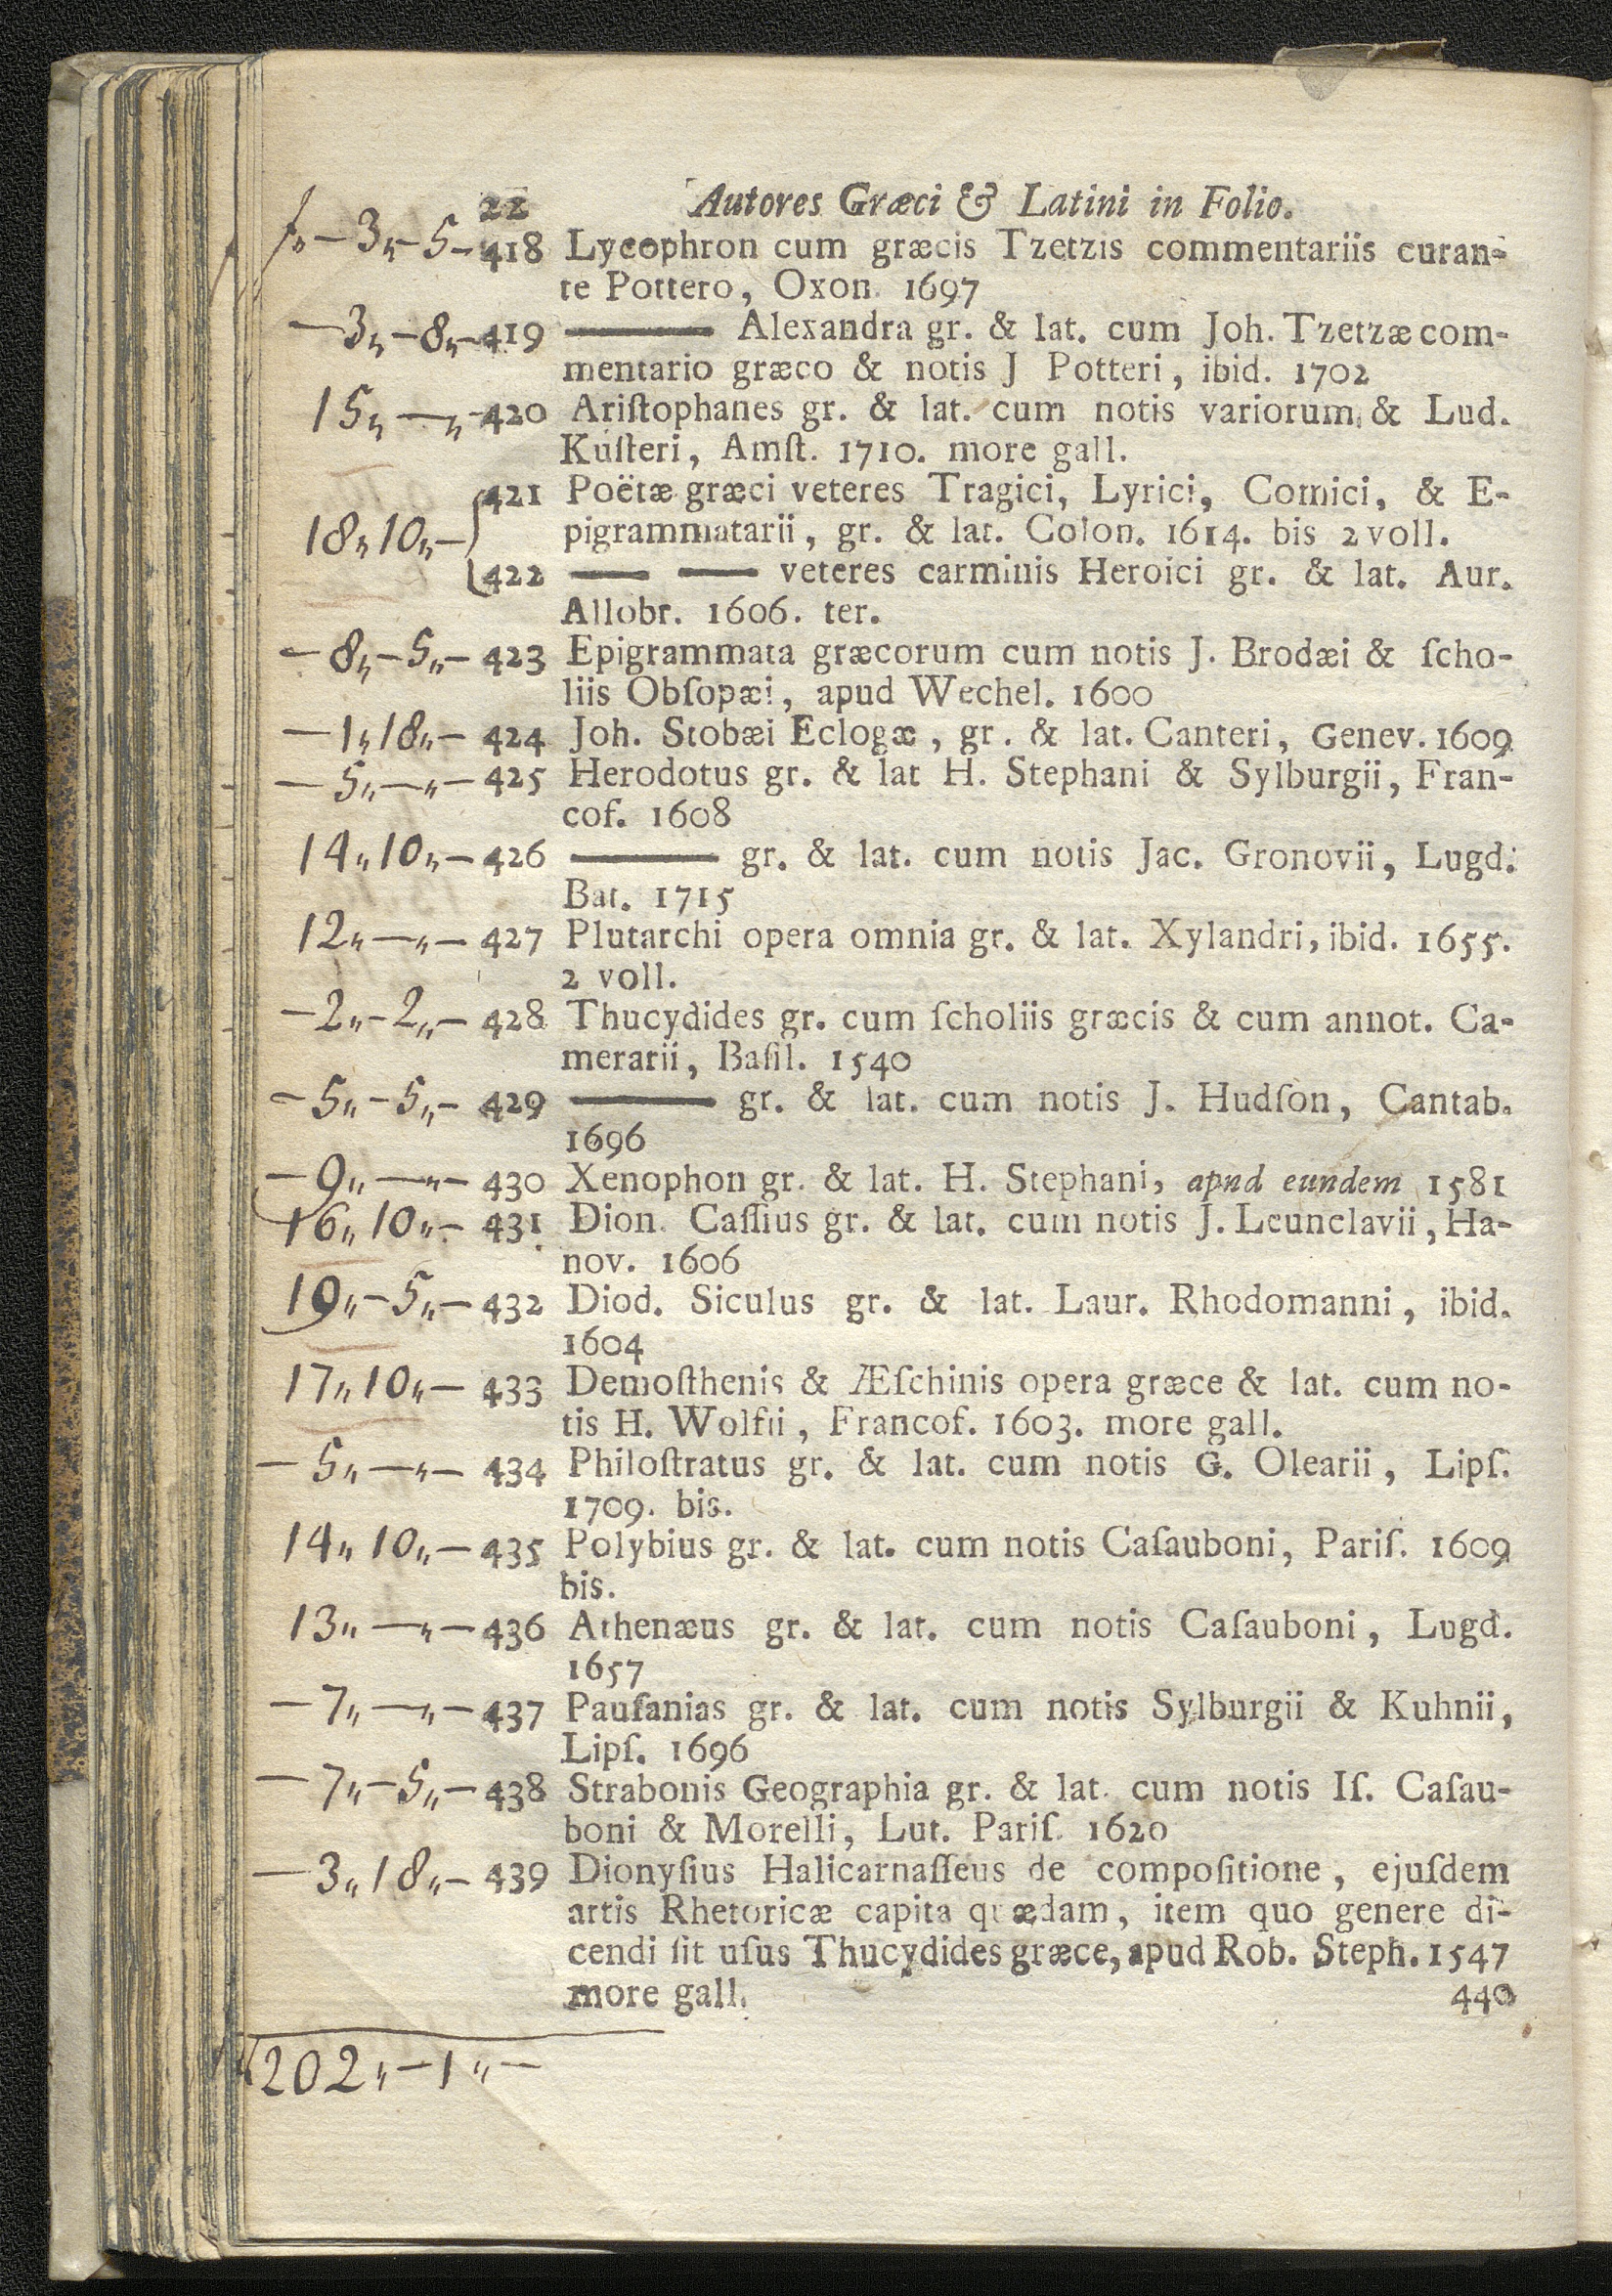 22 Autores Græci & Latini in Folio.
f„ — 3„ - 5 - 418 Lycophron cum græcis Tzetzis commentariis curan-
te Pottero, Oxon. 1697
— 3„ - 8„ - 419 ——— Alexandra gr. & lat. cum Joh. Tzetzæ com-
mentario græco & notis J Potteri, ibid. 1702
15„ — „ - 420 Ariſtophanes gr. & lat. cum notis variorum & Lud.
Kuſteri, Amſt. 1710. more gall.
421 Poëtæ græci veteres Tragici, Lyrici, Comici, & E-
18„ 10„ — pigrammatarii, gr. & lat. Colon. 1614. bis 2 voll.
422 — — veteres carminis Heroici gr. & lat. Aur.
Allobr. 1606. ter.
— 8„ - 5„ - 423 Epigrammata græcorum cum notis J. Brodæi & ſcho-
liis Obſopæi, apud Wechel. 1600
— 1„ 18„ - 424 Joh. Stobæi Eclogæ, gr. & lat. Canteri, Genev. 1609
— 5„ — „ - 425 Herodotus gr. & lat H. Stephani & Sylburgii, Fran-
cof. 1608
14„ 10„ - 426 ——— gr. & lat. cum notis Jac. Gronovii, Lugd.
Bat. 1715
12„ — „ - 427 Plutarchi opera omnia gr. & lat. Xylandri, ibid. 1655.
2 voll.
— 2„ - 2„ - 428 Thucydides gr. cum ſcholiis græcis & cum annot. Ca-
merarii, Baſil. 1540
— 5„ - 5„ - 429 ——— gr. & lat. cum notis J. Hudſon, Cantab.
1696
— 9„ — „ - 430 Xenophon gr. & lat. H. Stephani, apud eundem 1581
16„ 10„ - 431 Dion. Caſſius gr. & lat. cum notis J. Leunclavii, Ha-
nov. 1606
19„ - 5„ - 432 Diod. Siculus gr. & lat. Laur. Rhodomanni, ibid.
1604
17„ 10„ - 433 Demoſthenis & Æſchinis opera græce & lat. cum no-
tis H. Wolfii, Francof. 1603. more gall.
— 5„ — „ - 434 Philoſtratus gr. & lat. cum notis G. Olearii, Lipſ.
1709. bis.
14„ 10„ - 435 Polybius gr. & lat. cum notis Caſauboni, Pariſ. 1609
bis.
13„ — „ - 436 Athenæus gr. & lat. cum notis Caſauboni, Lugd.
1657
— 7„ — „ - 437 Pauſanias gr. & lat. cum notis Sylburgii & Kuhnii,
Lipſ. 1696
— 7„ - 5„ - 438 Strabonis Geographia gr. & lat. cum notis Iſ. Caſau-
boni & Morelli, Lut. Pariſ. 1620
— 3„ 18„ - 439 Dionyſius Halicarnaſſeus de compoſitione, ejuſdem
artis Rhetoricæ capita quædam, item quo genere di-
cendi ſit uſus Thucydides græce, apud Rob. Steph. 1547
more gall. 440
202„ - 1„ -